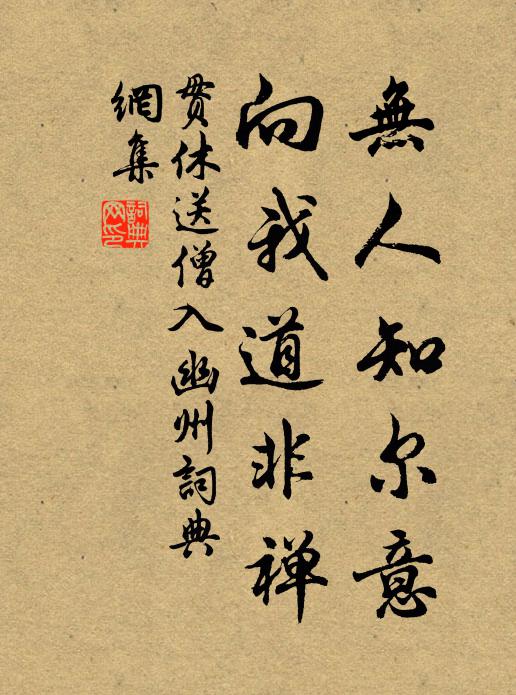 無人知尔意
向我道非禅
贯休送僧入幽州詞典
網集
詞典
网印